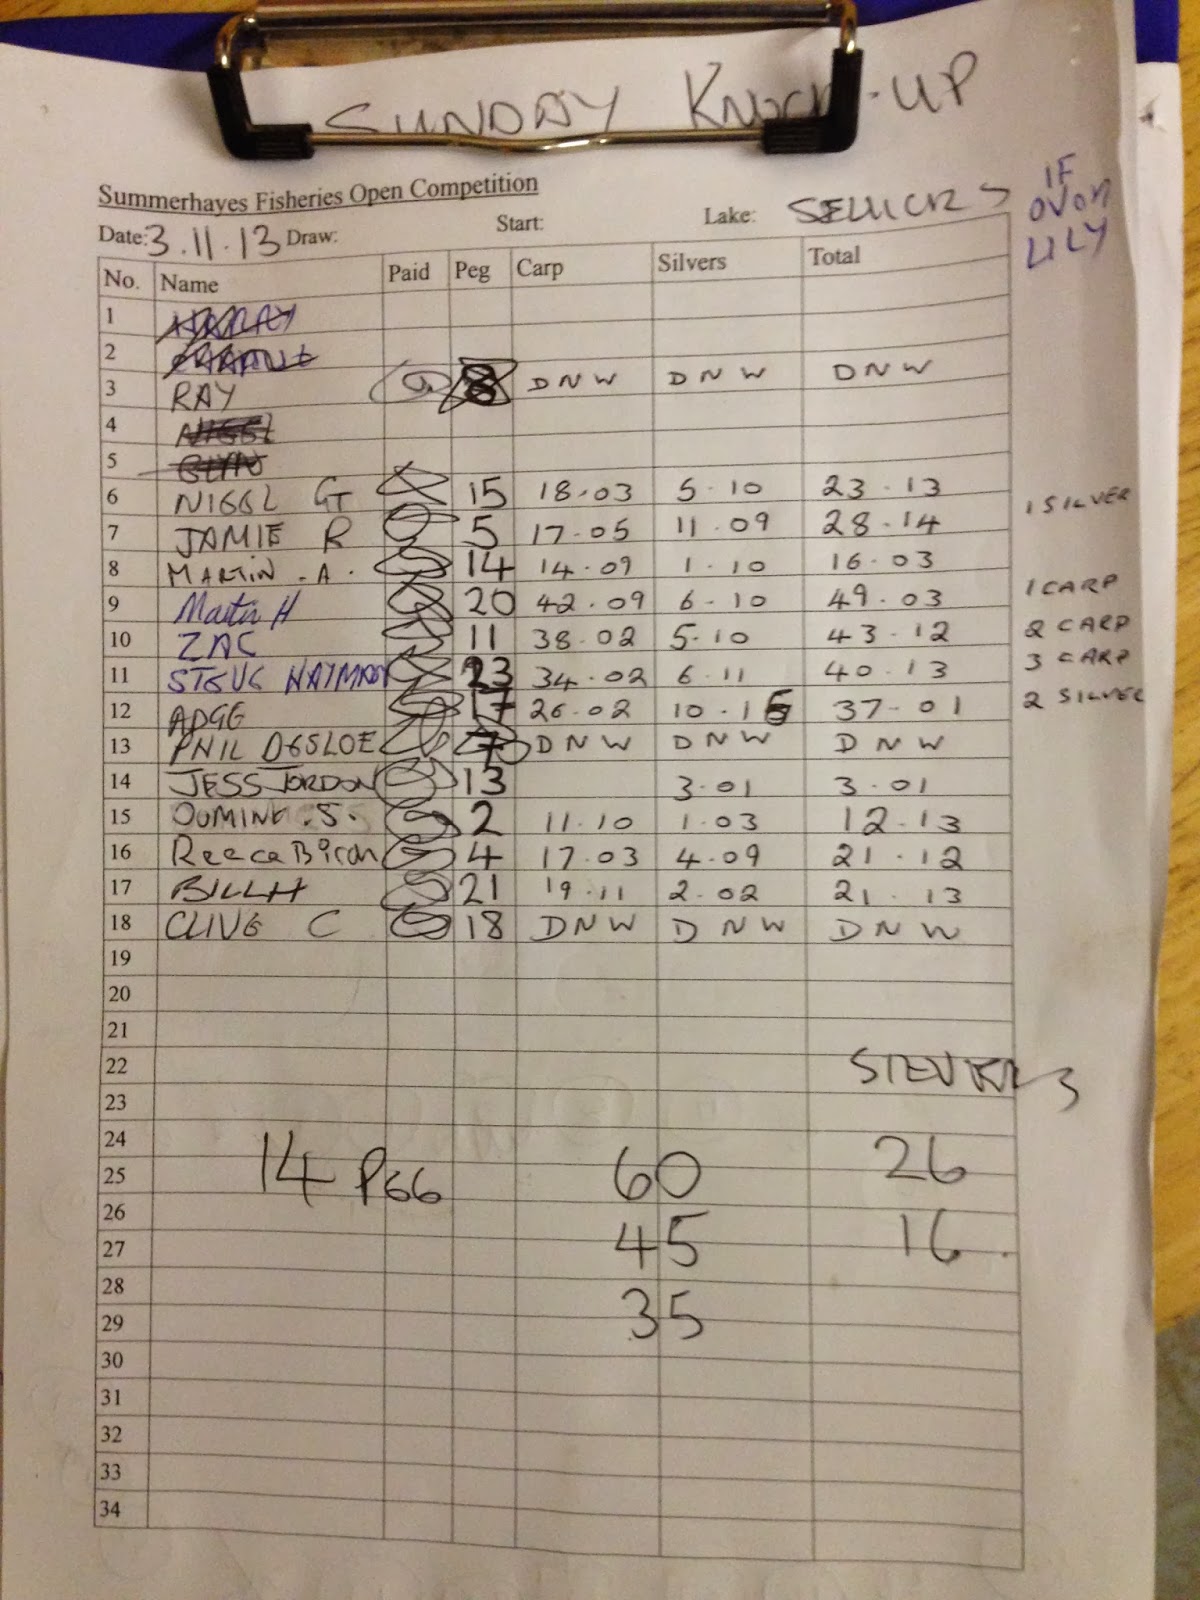 SUNDAY KNOCK-UP
Summerhayes Fisheries Open Competition
Date: 3.11.13 Draw: Start: Lake: SELLICKS
IF
OVON
LILY
No. Name Paid Peg Carp Silvers Total
1
2
3 RAY 8 DNW DNW DNW
4 NIGEL
5 GLYN
6 NIGEL GT 15 18-03 5-10 23-13
7 JAMIE R 5 17-05 11-09 28-14 1 SILVER
8 MARTIN.A. 14 14-09 1-10 16-03
9 Martin H 20 42-09 6-10 49-03 1 CARP
10 ZAC 11 38-02 5-10 43-12 2 CARP
11 STEVE HAYMAN 23 34-02 6-11 40-13 3 CARP
12 ADGE 17 26-02 10-15 37-01 2 SILVER
13 PHIL DESLOE 7 DNW DNW DNW
14 JESS JORDON 13 3-01 3-01
15 .S. 2 11-10 1-03 12-13
16 Reeca 4 17-03 4-09 21-12
17 BILL H 21 19-11 2-02 21-13
18 CLIVE C 18 DNW DNW DNW
19
20
21
22
23
24
25 14 PEG 60 26
26
27 45 16
28
29 35
30
31
32
33
34